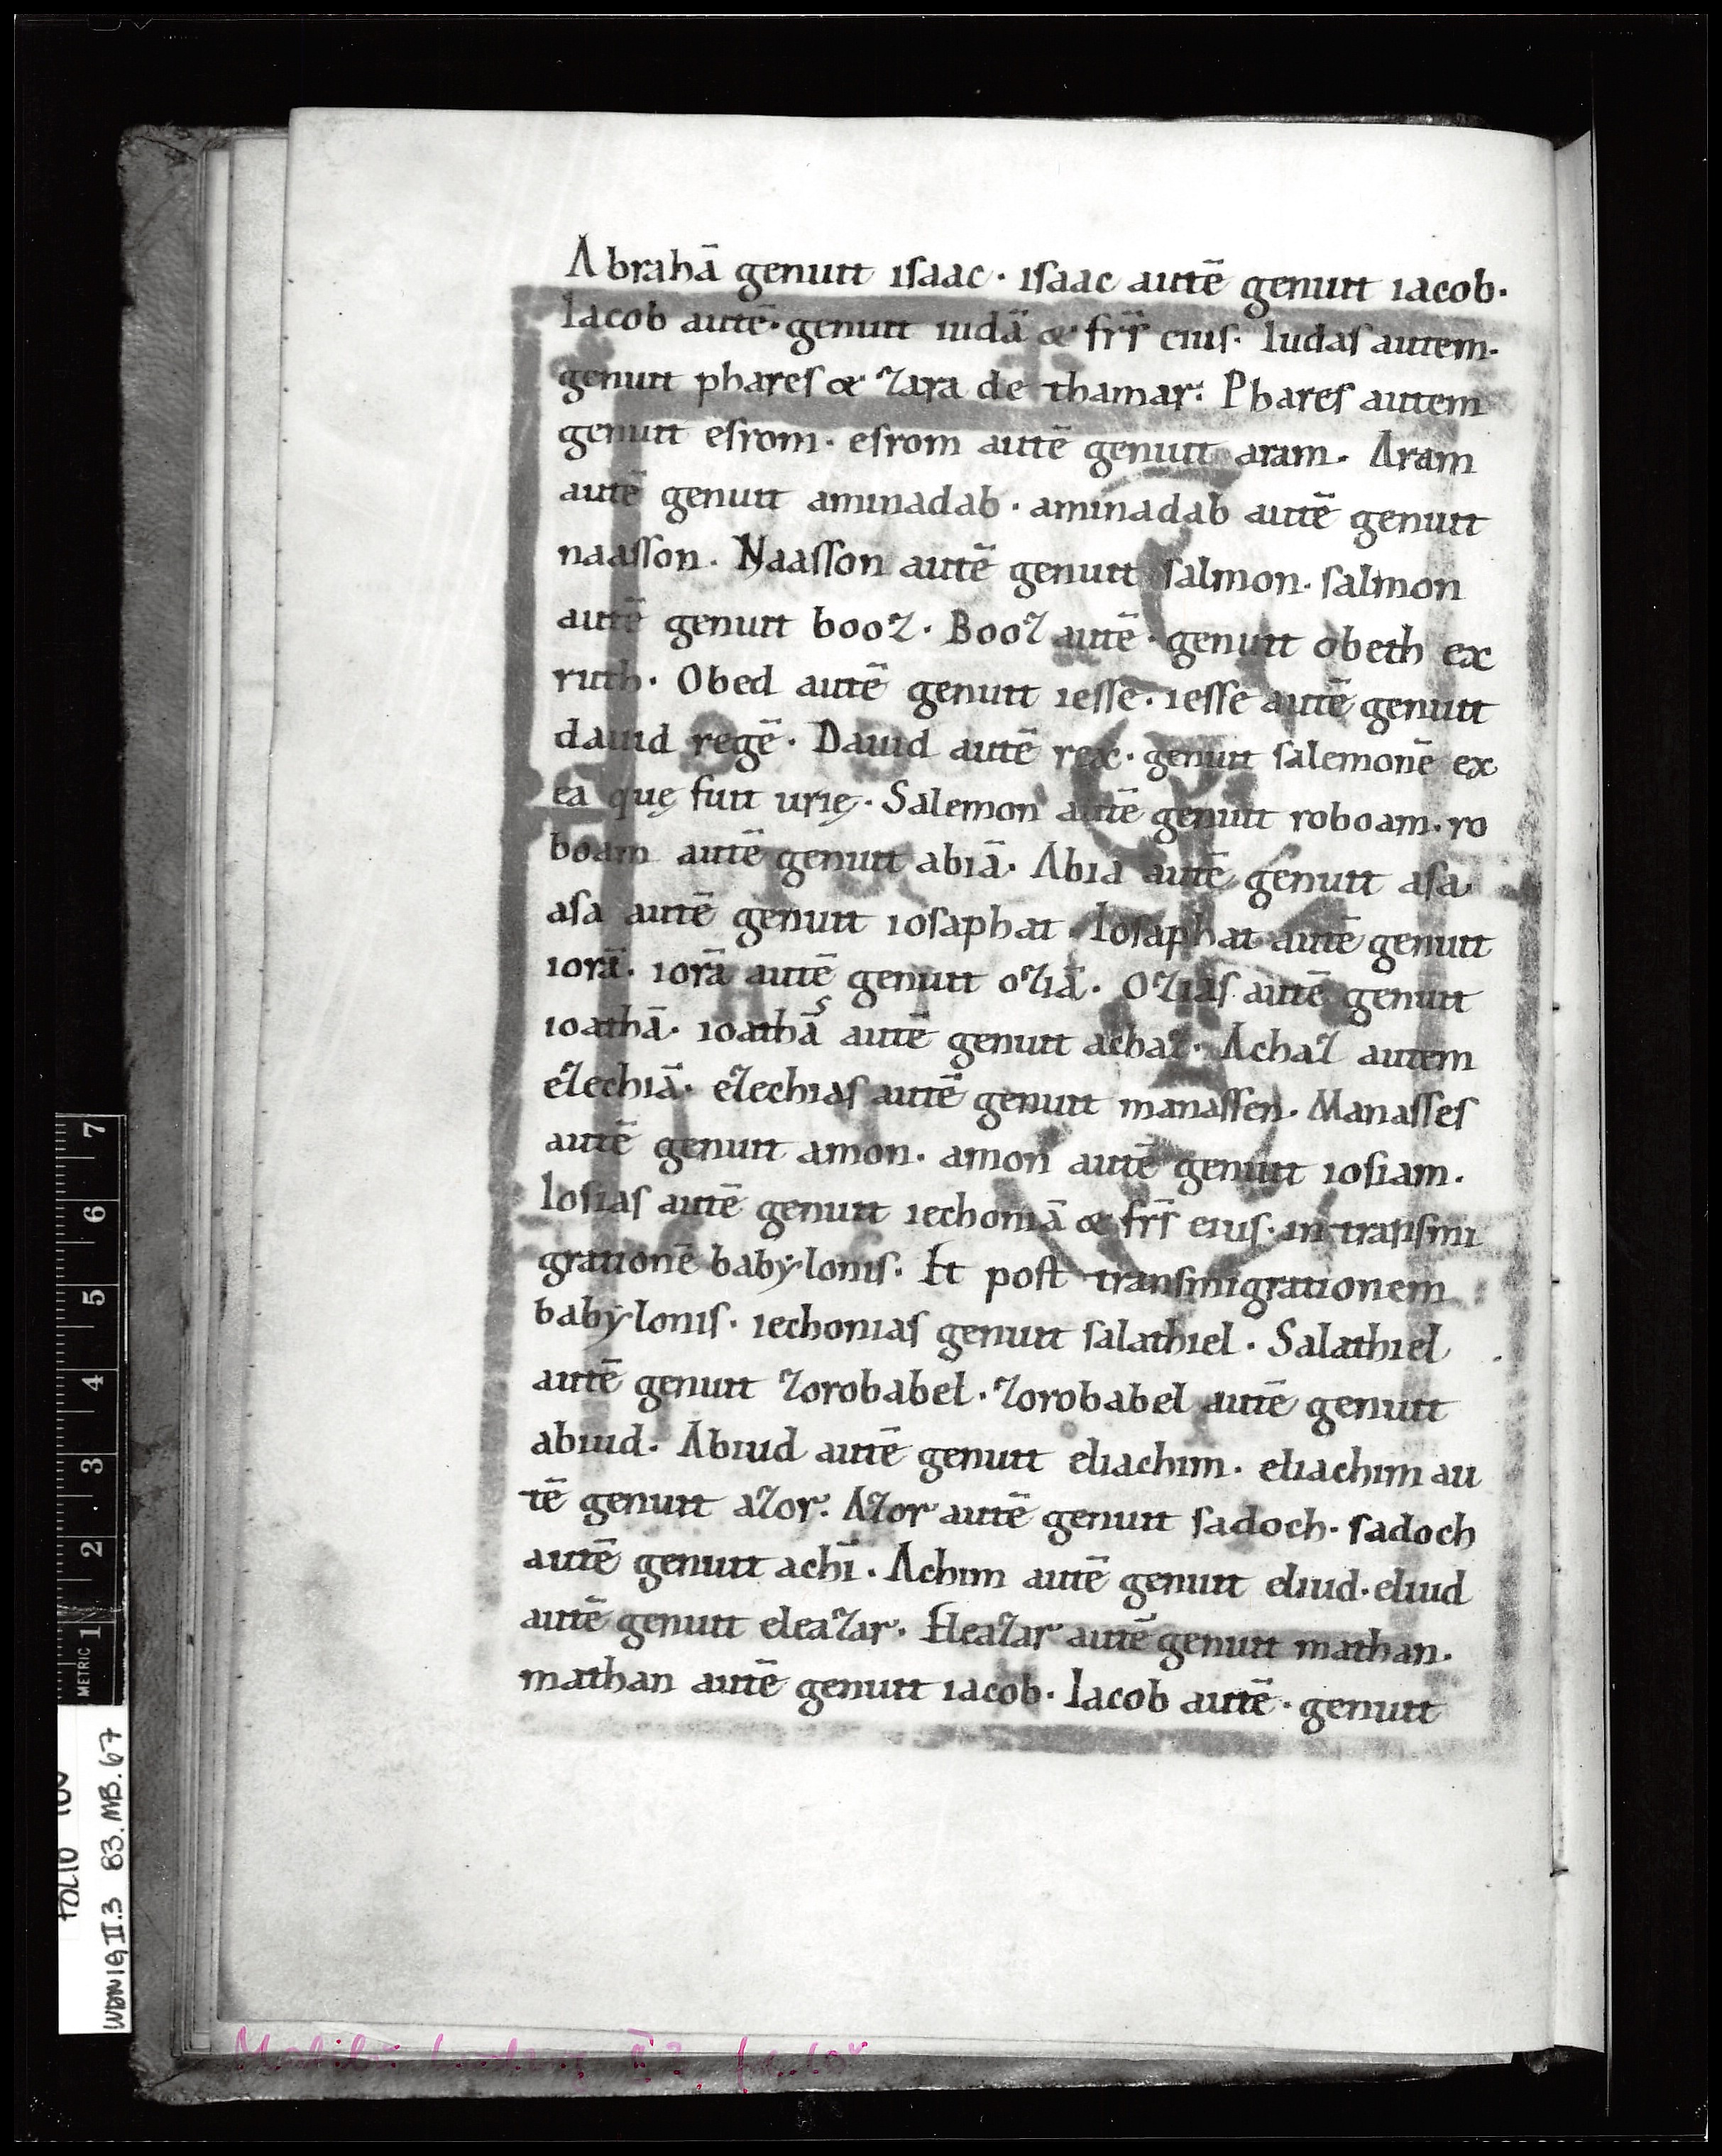 Abrahā genuit isaac · isaac autē genuit iacob·
Iacob autē· genuit iudā & frs̄ eius· Iudas autem·
genuit phares & zara de thamar· Phares autem
genuit esrom· esrom autē genuit aram· Aram
autē genuit aminadab · aminadab autē genuit
naasson· Naasson autē genuit salmon· salmon
autē genuit booz · Booz autē · genuit obeth ex
ruth· Obed autē genuit iesse· iesse autē genuit
dauid regē · Dauid autē rex · genuit salemonē ex
ea quę fuit urię · Salemon autē genuit roboam· ro
boam autē genuit abiā· Abia autē genuit asa·
asa autē genuit iosaphat · Iosaphat autē genuit
iorā· iorā autē genuit oziā· Ozias autē genuit
ioathā· ioathās autē genuit achaz· Achaz autem
ezechiā· ezechias autē genuit manassen· Manasses
autē genuit amon· amon autē genuit iosiam·
Iosias autē genuit iechoniā & frs̄ eius· in transmi
grationē babylonis· Et post transmigrationem
babylonis· iechonias genuit salathiel · Salathiel
autē genuit zorobabel · zorobabel autē genuit
abiud· Abiud autē genuit eliachim· eliachim au
tē genuit azor· Azor autē genuit sadoch· sadoch
autē genuit achī · Achim autē genuit eliud· eliud
autē genuit eleazar· Eleazar autē genuit mathan·
mathan autē genuit iacob· Iacob autē · genuit
METRIC 1 2 3 4 5 6 7
FOLIO
II.3 83.MB.67